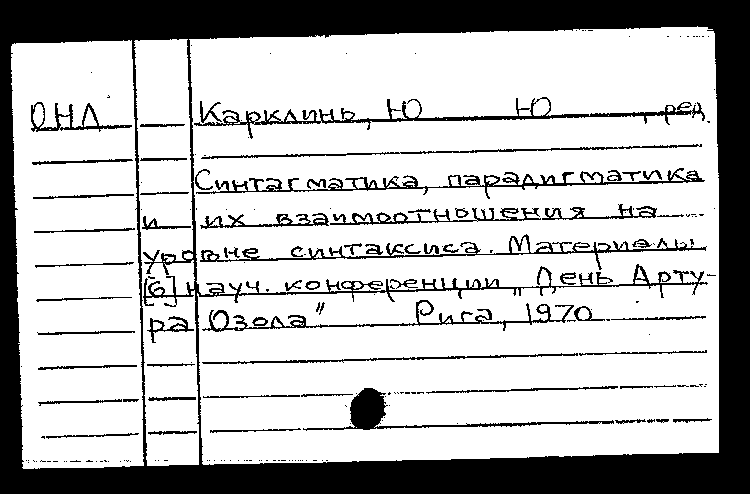 ОНЛ Карклинь, Ю Ю , ред.
Синтагматика, парадигматика
и их взаимоотношения на
уровне синтаксиса. Материалы
[6] науч. конференции „День Арту-
ра Озола" Рига, 1970